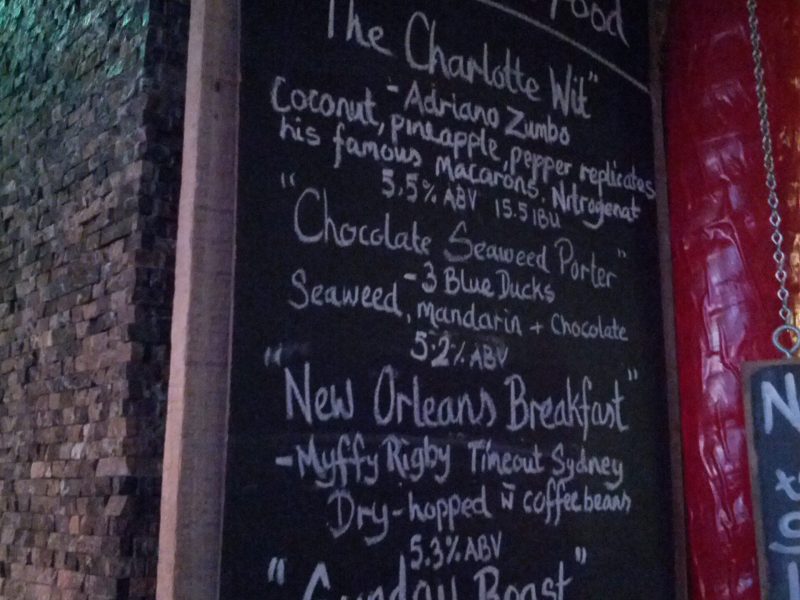 food
The Charlotte Wit"
- Adriano Zumbo
Coconut, pineapple, pepper replicates
his famous macarons. Nitrogenat
5.5% ABV 15.5 IBU
"Chocolate Seaweed Porter"
- 3 Blue Ducks
Seaweed, mandarin + Chocolate
5.2% ABV
"New Orleans Breakfast"
- Myffy Rigby Timeout Sydney
Dry-hopped n̄ coffee beans
5.3% ABV
"Sunday Roast"
N